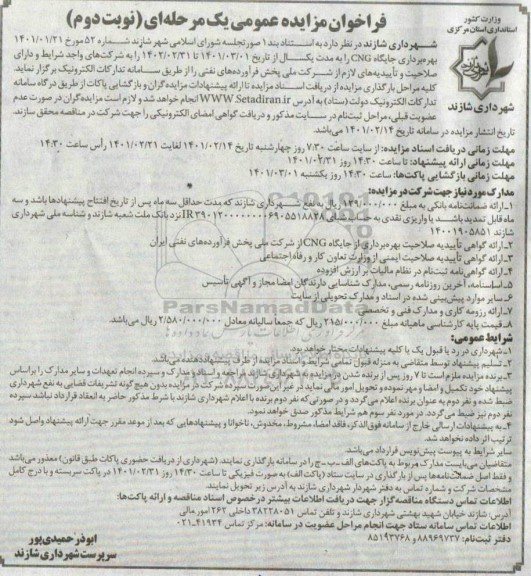 وزارت کشور
استانداری استان مرکزی
شهرداری شازند
فراخوان مزایده عمومی یک مرحله‌ای (نوبت دوم)
شهرداری شازند در نظر دارد به استناد بند ۱ صورتجلسه شورای اسلامی شهر شازند شماره ۵۲ مورخ ۱۴۰۱/۰۱/۲۱
بهره‌برداری جایگاه CNG را به مدت یکسال از تاریخ ۱۴۰۱/۰۳/۰۱ تا ۱۴۰۲/۰۲/۳۱ را به شرکت‌های واجد شرایط و دارای
صلاحیت و تأییدیه‌های لازم از شرکت ملی پخش فرآورده‌های نفتی را از طریق سامانه تدارکات الکترونیک برگزار نماید.
کلیه مراحل بارگذاری مزایده از دریافت اسناد مزایده تا ارائه پیشنهادات مزایده‌گران و بازگشایی پاکات از طریق درگاه سامانه
تدارکات الکترونیک دولت (ستاد) به آدرس WWW.Setadiran.ir انجام خواهد شد و لازم است مزایده‌گران در صورت عدم
عضویت قبلی، مراحل ثبت‌نام در سایت مذکور و دریافت گواهی امضای الکترونیکی را جهت شرکت در مناقصه محقق سازند.
تاریخ انتشار مزایده در سامانه تاریخ ۱۴۰۱/۰۲/۱۴ می‌باشد.
مهلت زمانی دریافت اسناد مزایده: از سایت ساعت ۷:۳۰ روز چهارشنبه تاریخ ۱۴۰۱/۰۲/۱۴ لغایت ۱۴۰۱/۰۲/۲۱ رأس ساعت ۱۴:۳۰
مهلت زمانی ارائه پیشنهاد: تا ساعت ۱۴:۳۰ روز ۱۴۰۱/۰۲/۳۱
مهلت زمانی بازگشایی پاکت‌ها: ساعت ۱۴:۳۰ روز یکشنبه ۱۴۰۱/۰۳/۰۱
مدارک مورد نیاز جهت شرکت در مزایده:
۱-ارائه ضمانتنامه بانکی به مبلغ ۱۲۹/۰۰۰/۰۰۰ ریال به نفع شهرداری شازند که مدت حداقل سه ماه پس از تاریخ افتتاح پیشنهادها باشد و سه
ماه قابل تمدید باشد. یا واریزی نقدی به حساب نزد بانک ملت شعبه شازند و شناسه ملی شهرداری
شازند ۱۴۰۰۱۹۰۵۸۵۱
۲-ارائه گواهی تأییدیه صلاحیت بهره‌برداری از جایگاه CNG از شرکت ملی پخش فرآورده‌های نفتی ایران
۳-ارائه گواهی تأییدیه صلاحیت ایمنی از وزارت تعاون کار و رفاه اجتماعی
۴-ارائه گواهی‌نامه ثبت‌نام در نظام مالیات بر ارزش افزوده
۵-اساسنامه، آخرین روزنامه رسمی، مدارک شناسایی دارندگان امضا مجاز و آگهی تأسیس
۶-سایر موارد پیش‌بینی شده در اسناد و مدارک تحویلی از سایت
۷-ارائه رزومه کاری و مدارک فنی و تخصصی
۸-قیمت پایه کارشناسی ماهیانه مبلغ ۲۱۵/۰۰۰/۰۰۰ ریال که جمعا سالیانه معادل ۲/۵۸۰/۰۰۰/۰۰۰ ریال می‌باشد.
شرایط عمومی:
۱-شهرداری در رد یا قبول یک یا کلیه پیشنهادات مختار خواهد بود.
۲-تسلیم پیشنهاد توسط متقاضی به منزله قبول تمامی شرایط و اسناد مزایده از طرف پیشنهاددهنده می‌باشد.
۳-برنده مزایده ملزم است تا ۷ روز پس از برنده شدن در مزایده به شهرداری شازند مراجعه و اسناد و مدارک و سپرده انجام تعهدات و سایر مدارک را بر اساس
پیشنهاد خود تکمیل و امضا و مهر نموده و تحویل امور مالی نماید در غیر این صورت سپرده شرکت در مزایده بدون هیچ گونه تشریفات قضایی به نفع شهرداری
ضبط شده و نفر دوم به عنوان برنده اعلام می‌گردد و در صورتی که نفر دوم برنده با اعلام شهرداری شازند با شرط مذکور حاضر به انعقاد قرارداد نباشد سپرده
نفر دوم نیز ضبط می‌گردد. در مورد نفر سوم هم شرایط مذکور صدق خواهد نمود.
۴-به پیشنهادات ارسالی خارج از سامانه فوق‌الذکر، فاقد امضا، مشروط، مخدوش، ناخوانا و پیشنهادهایی که بعد از موعد مقرر جهت ارائه پیشنهاد واصل شود
ترتیب اثر داده نخواهد شد.
سایر شرایط به پیوست پیش‌نویس قرارداد می‌باشد.
متقاضیان می‌بایست مدارک مربوط به پاکت‌های الف-ب-ج را در سامانه بارگذاری نمایند. (شهرداری از دریافت حضوری پاکات طبق قانون) معذور می‌باشد
و فقط اصل ضمانت‌نامه‌ها پس از بارگذاری در سایت ستاد (پاکت الف) به صورت فیزیکی تا ساعت ۱۴:۳۰ روز ۱۴۰۱/۰۲/۳۱ در پاکت سربسته و با درج کامل
مشخصات شرکت و شماره تماس به دفتر شهردار شهرداری شازند به آدرس زیر تحویل نمایند.
اطلاعات تماس دستگاه مناقصه‌گزار جهت دریافت اطلاعات بیشتر در خصوص اسناد مناقصه و ارائه پاکت‌ها:
آدرس: شازند خیابان شهید بهشتی شهرداری شازند و تلفن تماس ۳۸۲۲۸۰۵۱ داخلی ۲۶۲ امور مالی
اطلاعات تماس سامانه ستاد جهت انجام مراحل عضویت در سامانه: مرکز تماس ۴۱۹۳۴-۰۲۱
دفتر ثبت‌نام: ۸۸۹۶۹۷۳۷ و ۸۵۱۹۳۷۶۸
ابوذر حمیدی‌پور
سرپرست شهرداری شازند
ParsNamadData